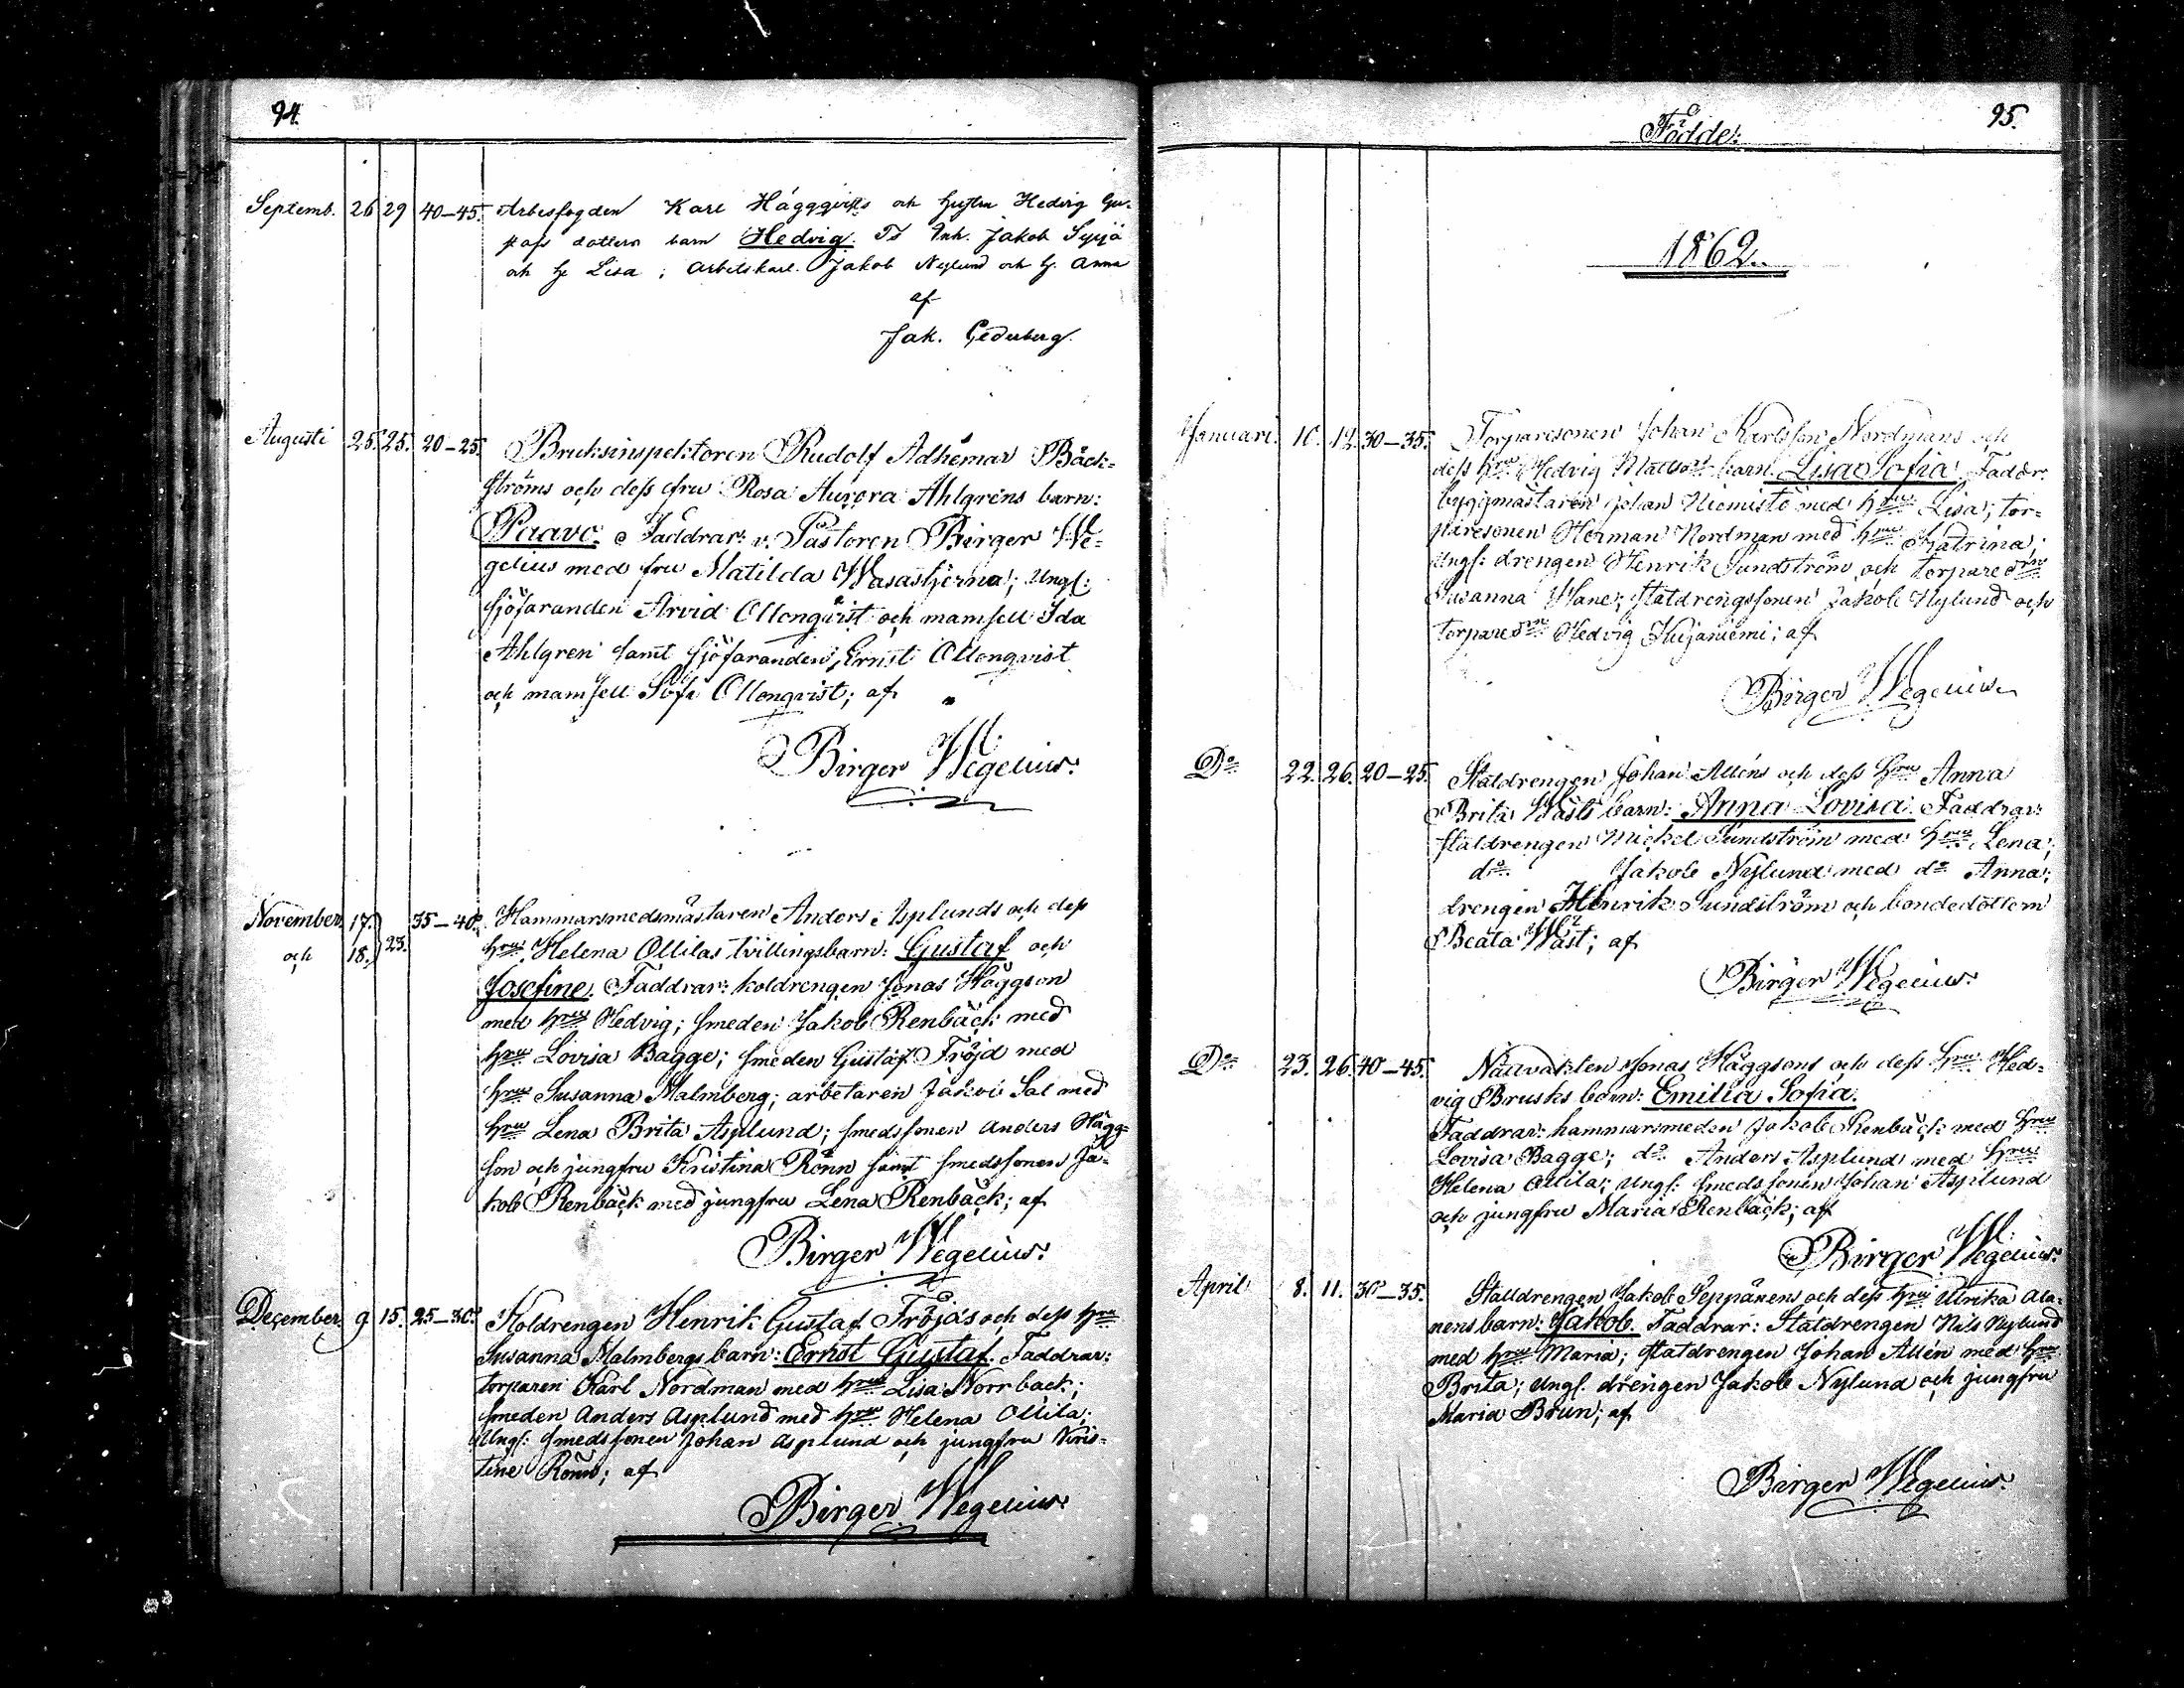 94.
Septemb. 26 29 40–45. Arbesfogden Karl Häggqvists och hustru Hedvig Gu-
stafs dotters barn Hedvig. Inh. Jakob
och h. Lisa; arbetskarl. Jakob Nylund och h. Anna
af
Jak. Cederberg.
Augusti 25. 25. 20–25. Bruksinspektoren Rudolf Adhémar Bäck-
ströms och dess fru Rosa Aurora Ahlgréns barn:
Paavo. Faddrar: v. Pastoren Birger We-
gelius med fru Matilda Wasastjerna; Ungl:
sjöfaranden Arvid Ollonqvist och mamsell Ida
Ahlgren samt sjöfaranden Ernst Ollonqvist
och mamsell Sofi Ollonqvist; af
Birger Wegelius.
November 17. 35–40. Hammarsmedsmästaren Anders Asplunds och dess
och 18. 23. hru Helena Ollilas tvillingsbarn: Gustaf och
Josefine. Faddrar: koldrengen Jonas Häggson
med hru Hedvig; smeden Jakob Renbäck med
hru Lovisa Bagge; smeden Gustaf Fröjd med
hru Susanna Malmberg; arbetaren Jakob Sal med
hru Lena Brita Asplund; smedssonen Anders Hägg-
son och jungfru Kristina Rönn samt smedssonen Ja-
kob Renbäck med jungfru Lena Renbäck; af
Birger Wegelius.
December. 9 15. 25–30. Koldrengen Henrik Gustaf Fröjds och dess hru
Susanna Malmbergs barn: Ernst Gustaf. Faddrar:
torparen Karl Nordman med hru Lisa Norrback;
smeden Anders Asplund med hru Helena Ollila;
Ungl: smedssonen Johan Asplund och jungfru Kris-
tine Rönn; af
Birger Wegelius.
Födde: 95.
1862.
Januari. 10. 12. 30–35. Torparesonen Johan Karlsson Nordmans och
dess hru Hedvig barn Lisa Sofia. Faddr:
byggmästaren Johan Niemistö med hru Lisa; tor-
paresonen Herman Nordman med hru Katrina;
Ungl: drengen Henrik Sundström och torpared:rn
Susanna; statdrengssonen Jakob Nylund och
torpared:rn Hedvig Kujaniemi; af
Birger Wegelius.
Do 22. 26. 20–25. Staldrengen Johan Alléns och dess hru Anna
Brita Wästs barn: Anna Lovisa. Faddrar:
staldrengen Mickel Sundström med hru Lena;
do Jakob Nylund med do Anna;
drengen Henrik Sundström och bondedottern
Beata Wäst; af
Birger Wegelius.
Do 23. 26. 40–45. Jonas Häggsons och dess hru Hed-
vig Brusks barn: Emilia Sofia.
Faddrar: hammarsmeden Jakob Renbäck med hru
Lovisa Bagge; do Anders Asplund med hru
Helena Ollila; Ungl: smedssonen Johan Asplund
och jungfru Maria Renbäck; af
Birger Wegelius.
April 8. 11. 30–35. Stalldrengen Jakob Seppänens och dess hru Ulrika Ala-
nens barn: Jakob. Faddrar: Statdrengen Nils Nylund
med hru Maria; statdrengen Johan Allén med hru
Brita; Ungl. drengen Jakob Nylund och jungfru
Maria Brun; af
Birger Wegelius.